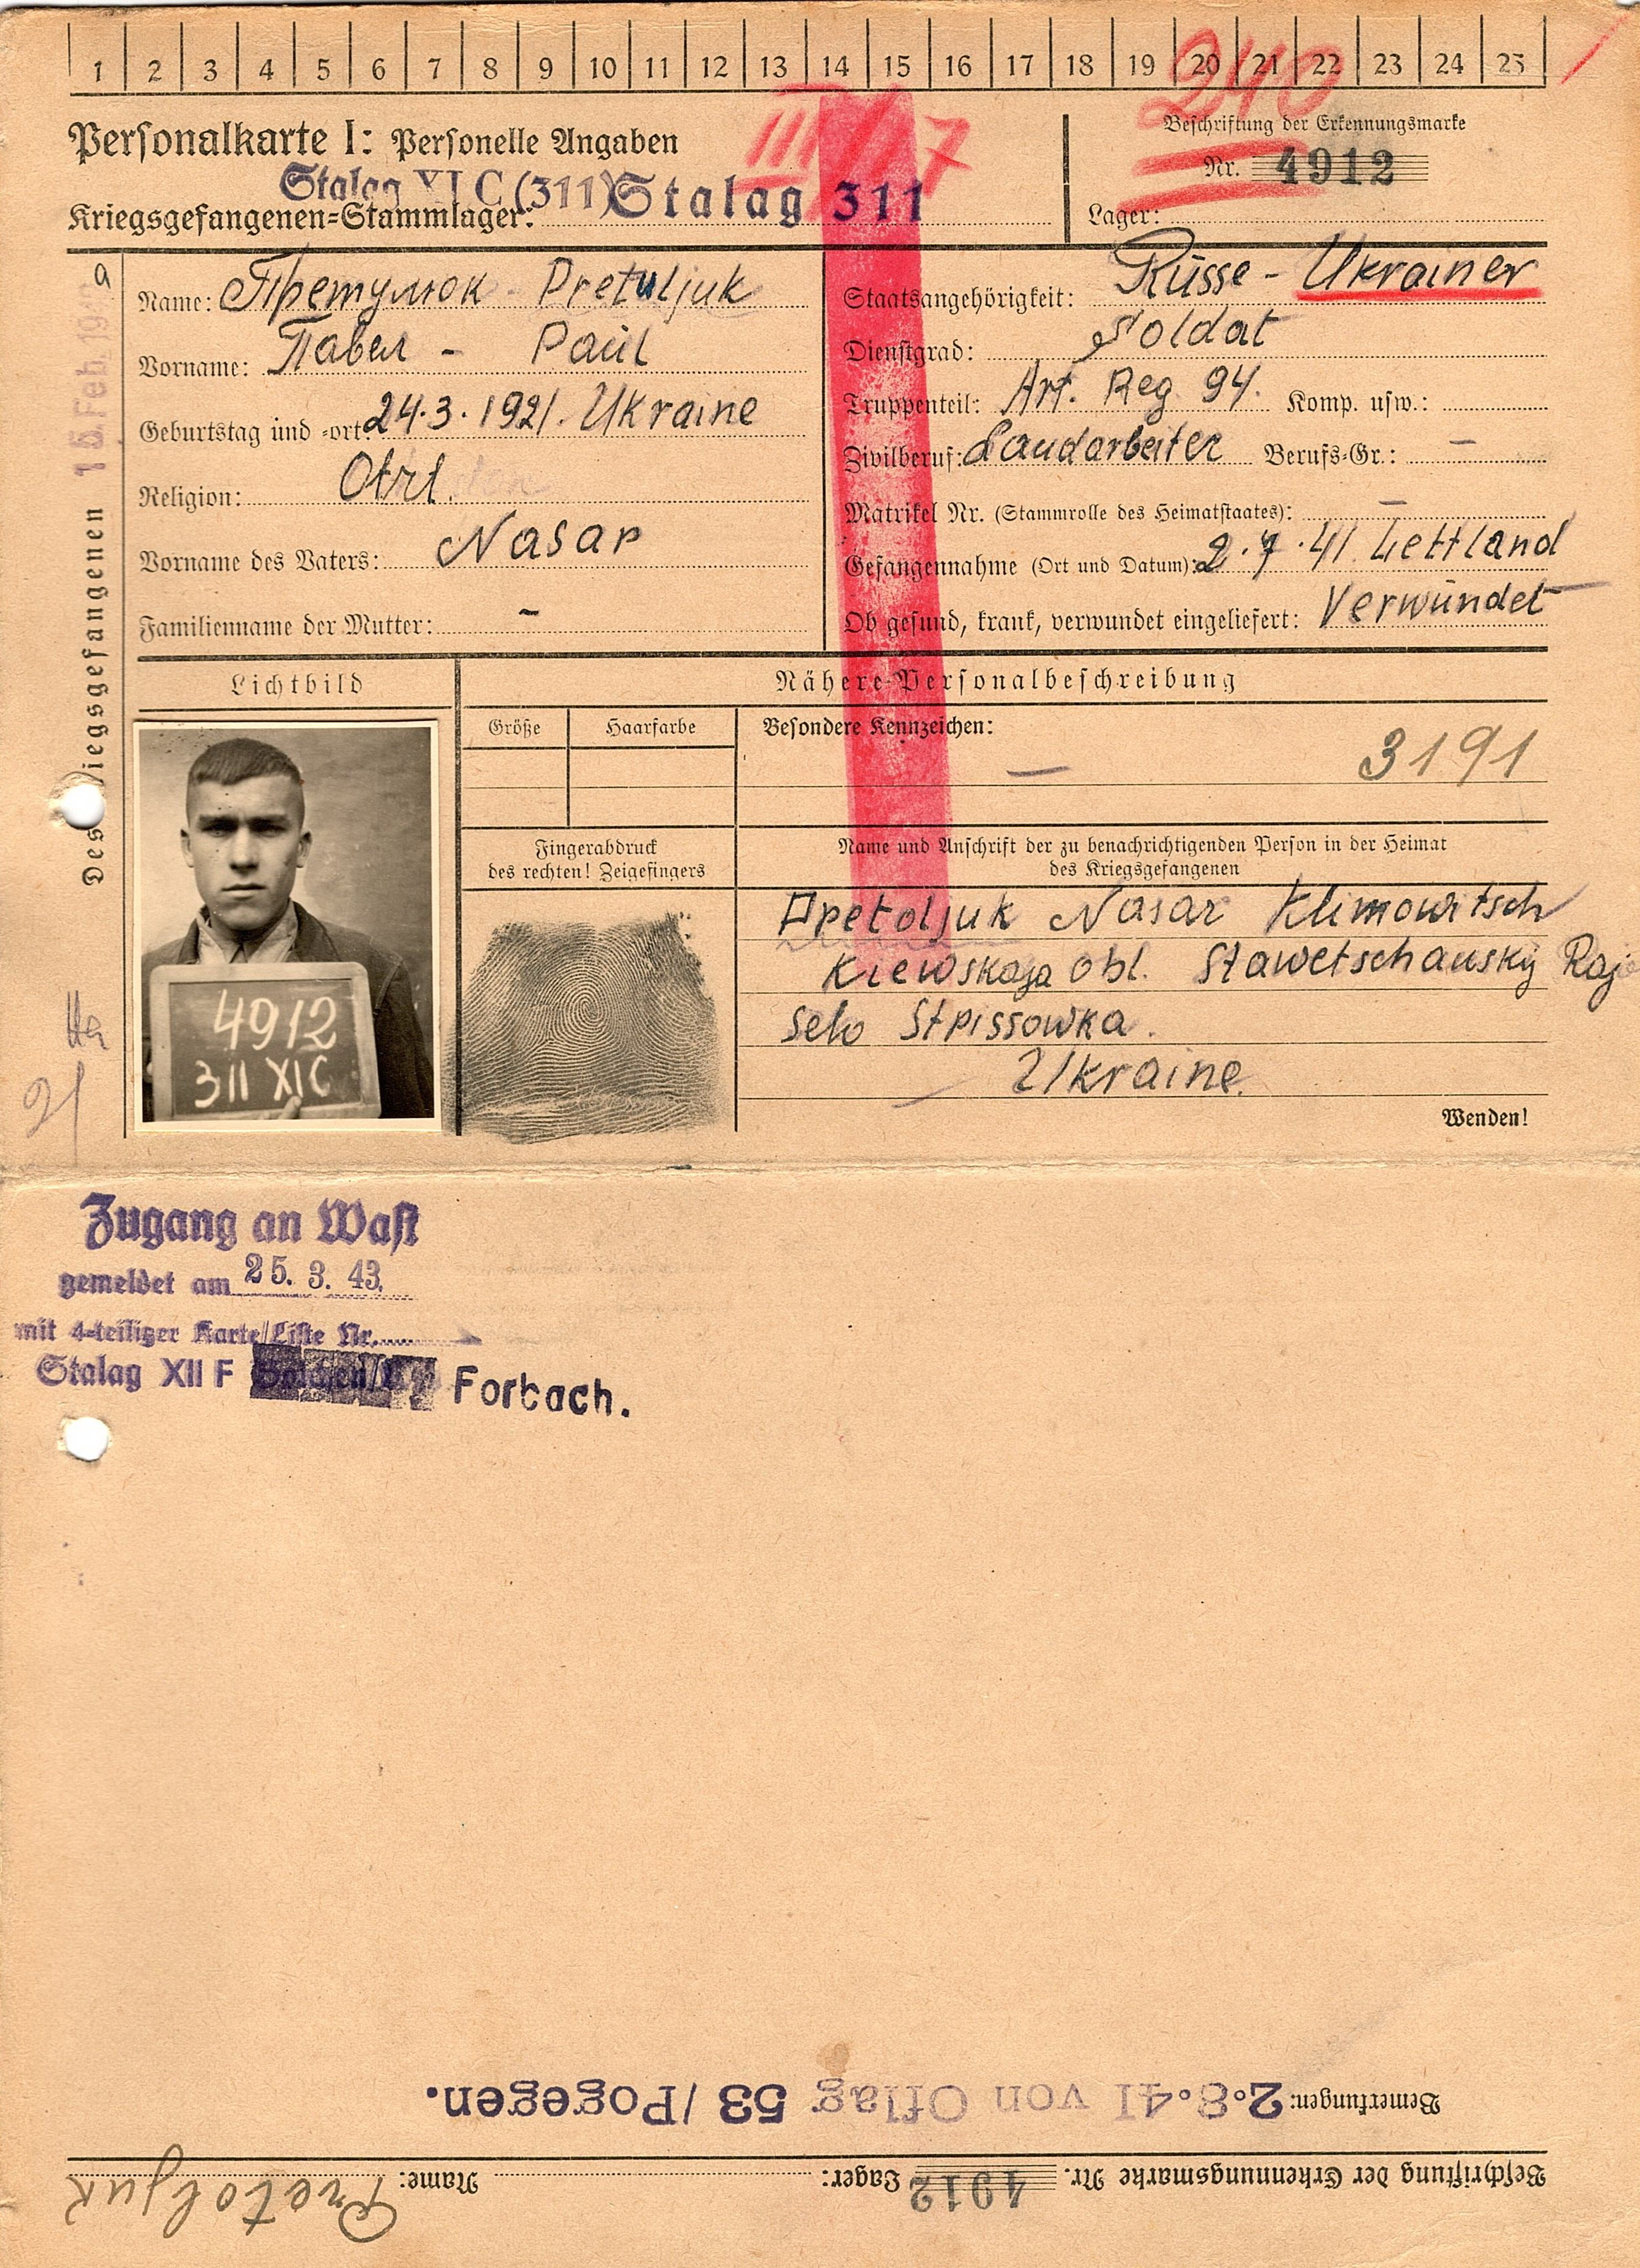 1 2 3 4 5 6 7 8 9 10 11 12 13 14 15 16 17 18 19 20 21 22 23 24 25
240
Personalkarte I: Personelle Angaben
III/17
Beschriftung der Erkennungsmarke
Nr. 4912
Stalag XI C (311) Stalag 311
Kriegsgefangenen=Stammlager:
Lager:
Des Kriegsgefangenen
15. Feb. 19
Name: Претулюк - Pretuljuk
Vorname: Павел - Paul
Geburtstag und -ort: 24.3.1921. Ukraine
Religion:
Vorname des Vaters: Nasar
Familienname der Mutter: -
Staatsangehörigkeit: Russe - Ukrainer
Dienstgrad: Soldat
Truppenteil: Art. Reg. 94. Komp. usw.:
Zivilberuf: Landarbeiter Berufs=Gr.: -
Matrikel Nr. (Stammrolle des Heimatstaates): -
Gefangennahme (Ort und Datum): 2.7.41. Lettland
Ob gesund, krank, verwundet eingeliefert: Verwundet
Lichtbild
4912
311 XI C
Nähere Personalbeschreibung
Größe Haarfarbe Besondere Kennzeichen:
-
3191
Fingerabdruck
des rechten! Zeigefingers
Name und Anschrift der zu benachrichtigenden Person in der Heimat
des Kriegsgefangenen
Pretoljuk Nasar Klimowitsch
Kiewskaja obl. Stawetschansky Raj
Selo Stpissowka.
Ukraine.
Wenden!
21
Zugang an Wast
gemeldet am 25. 3. 43.
mit 4-teiliger Karte/Liste Nr.
Stalag XII F Forbach.
Bemerkungen: 2.8.41 von Oflag 53/Pogegen.
Beschriftung der Erkennungsmarke Nr. 4912 Lager: Name: Pretoljuk